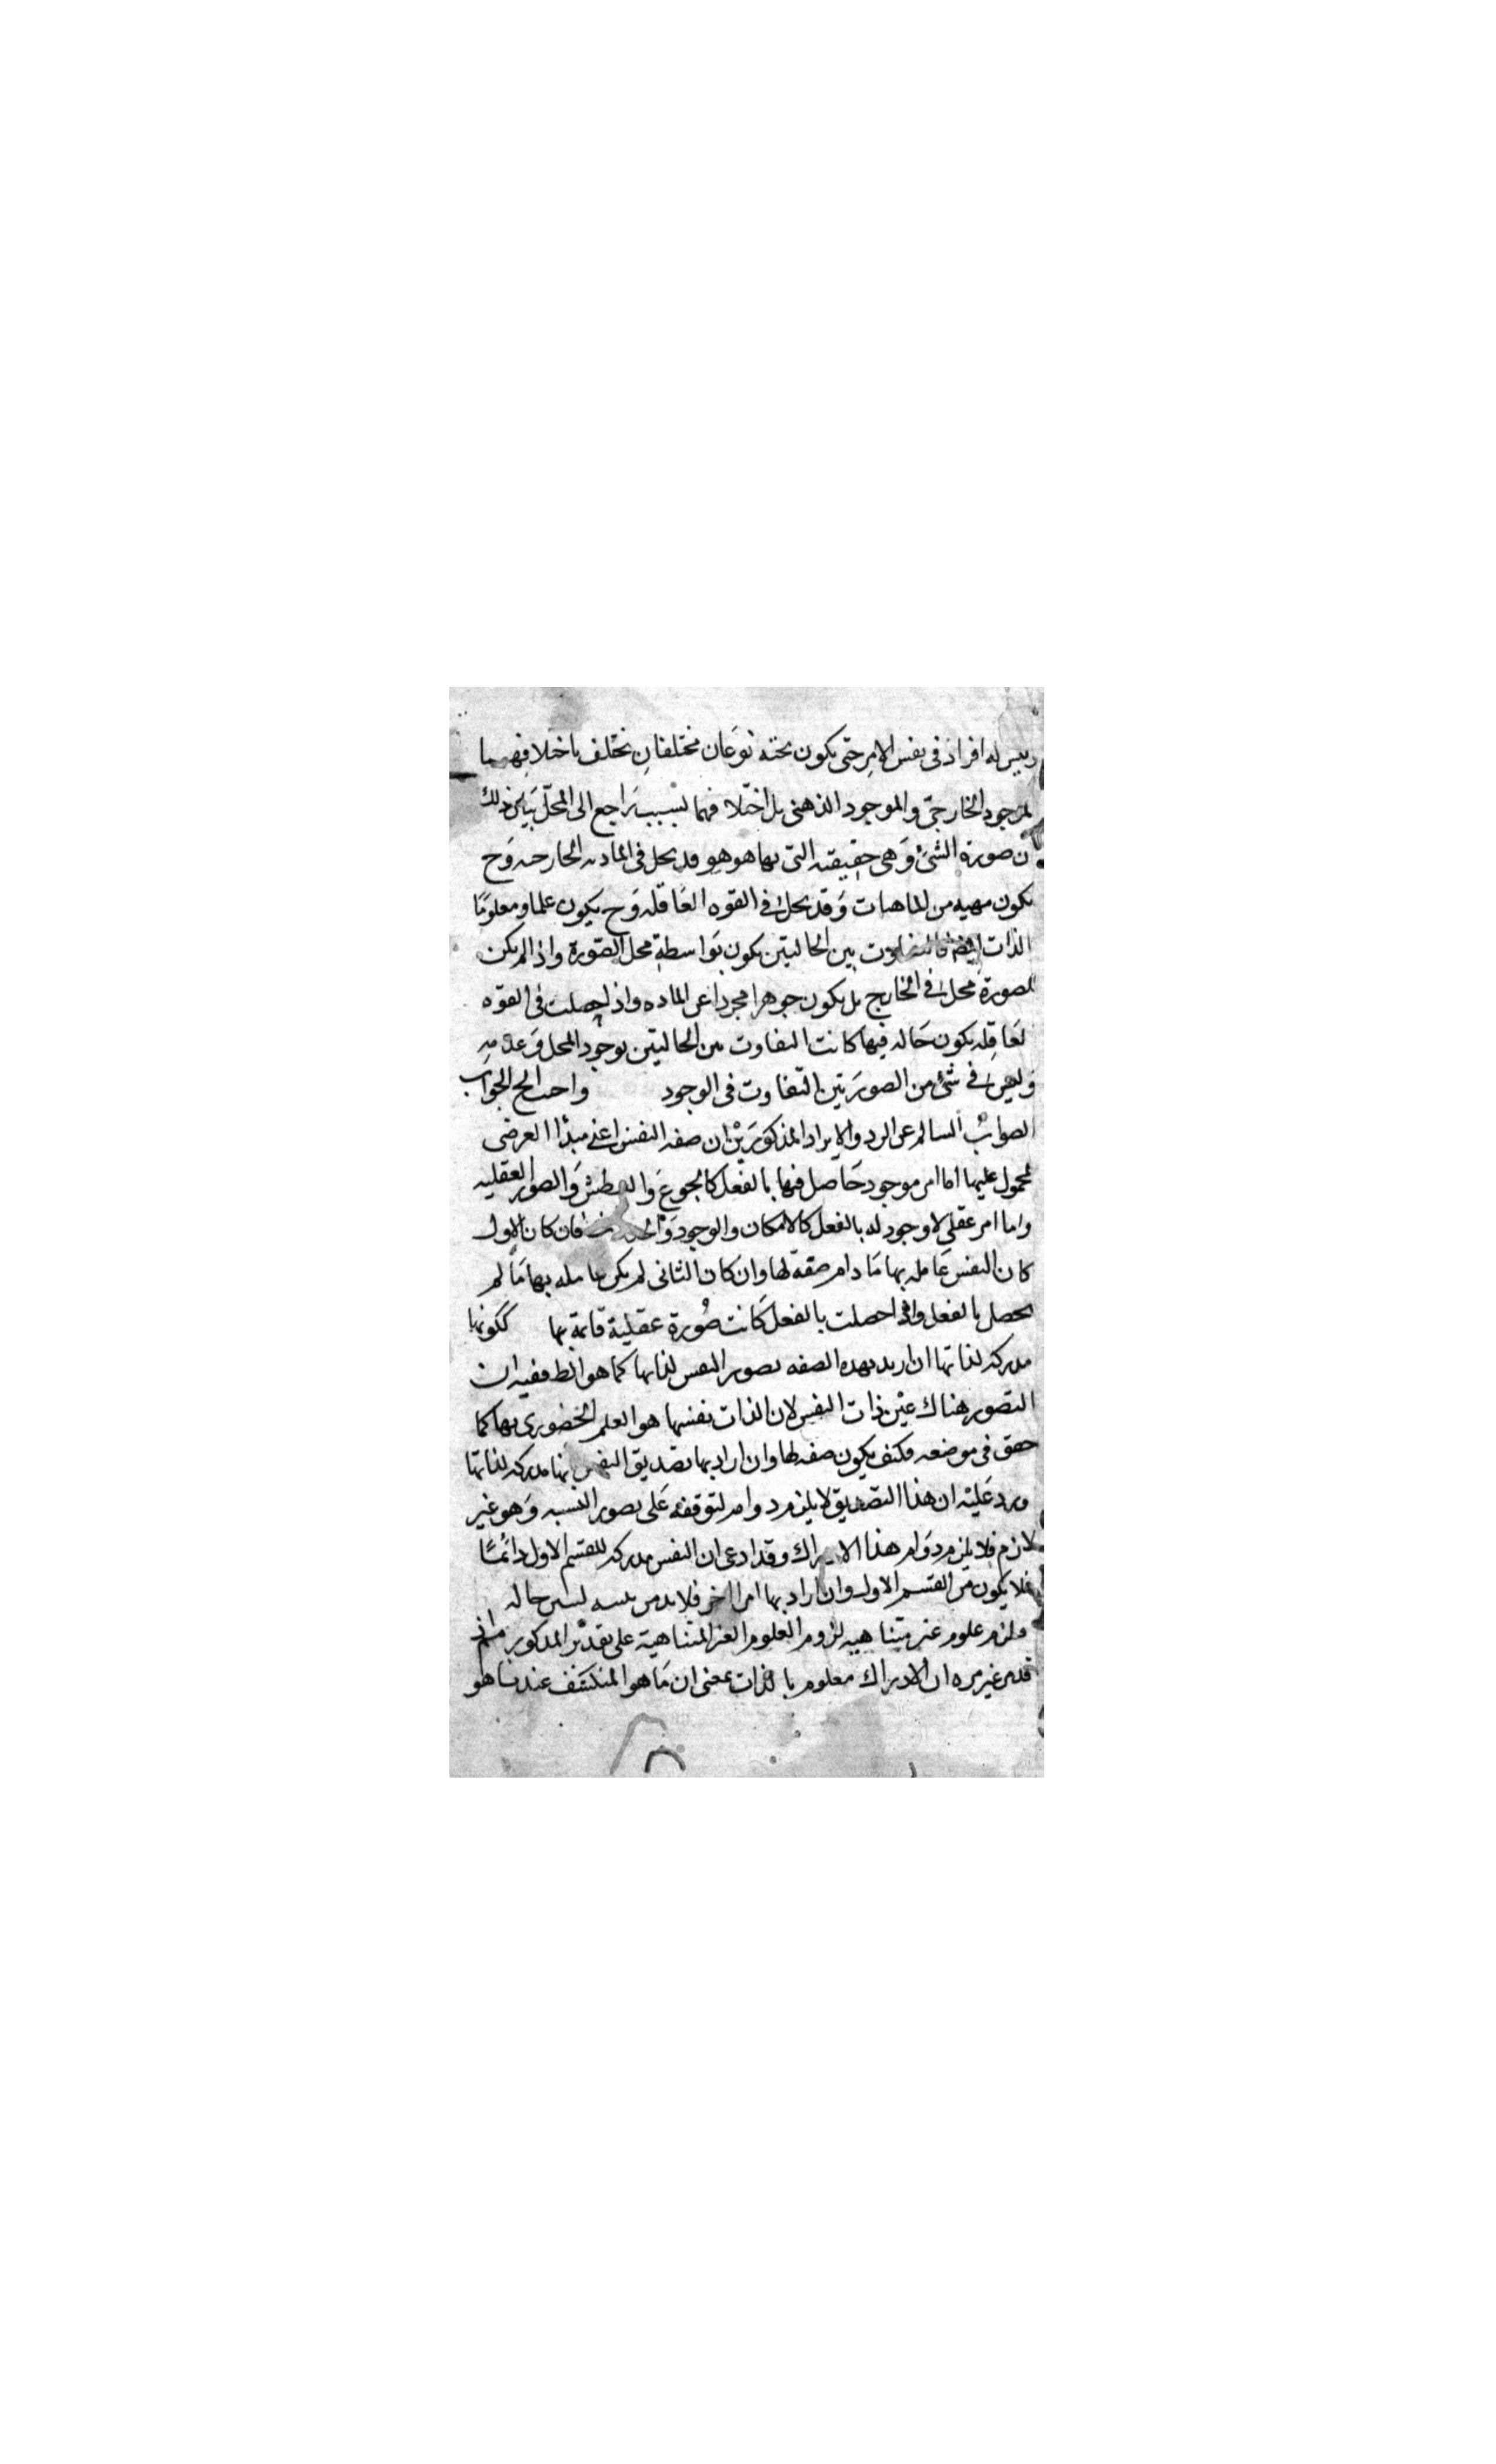 وليس له افراد فى نفس الامر حتى يكون تحته نوعان مختلفان يختلف باختلافهما
الموجود الخارجى والموجود الذهنى بل اختلافهما بسبب راجع الى المحل بيان ذلك
ان صورة الشئ وهى حقيقته التى بها هو هو قد يحل فى المادة الخارجيه وح
يكون مهيه من الماهيات وقد يحل فى القوه العاقله وح يكون علما ومعلوما
بالذات ايضا فالتفاوت بين الحاليتين يكون بواسطة محل الصورة واذا لم يكن
للصورة محل فى الخارج بل يكون جوهرا مجردا عن الماده واذا حصلت فى القوه
العاقله يكون حاله فيها كانت التفاوت بين الحاليتين بوجود المحل وعدمه
وليس فى شئ من الصورتين التفاوت فى الوجود والجواب
الصواب السالم عن الرد والايراد المذكورين ان صفه النفس اعنى مبدأ العرضى
المحمول عليها اما امر موجود حاصل فيها بالفعل كالجوع والعطش والصور العقليه
واما امر عقلى لا وجود له بالفعل كالامكان والوجود فان كان الاول
كان النفس عامله بها ما دام صفة لها وان كان الثانى لم يكن عامله بها ما لم
يحصل بالفعل واذا حصلت بالفعل كانت صورة عقلية قائمة بها ككونها
مدركه لذاتها ان اريد بهده الصفه تصور النفس لذاتها كما هو الظ ففيه ان
التصور هناك عين ذات النفس لان الذات نفسها هو العلم الحضورى بها كما
حقق فى موضعه فكيف يكون صفه لها وان اراد بها تصديق النفس بانها مدركه لذاتها
ويرد عليه ان هذا التصديق لا يلزم دوامه لتوقفه على تصور النسبه وهو غير
لازم فلا يلزم دوام هذا الادراك وقد ادعى ان النفس مدركه للقسم الاول دائما
فلا يكون من القسم الاول وان اراد بها امرا اخر فلا بد من حاله
ويلزم علوم غير متناهيه لزوم العلوم الغير المتناهية على تقدير المذكور
قد مر غير مره ان الادراك معلوم بالذات بمعنى ان ما هو المنكشف عندنا هو